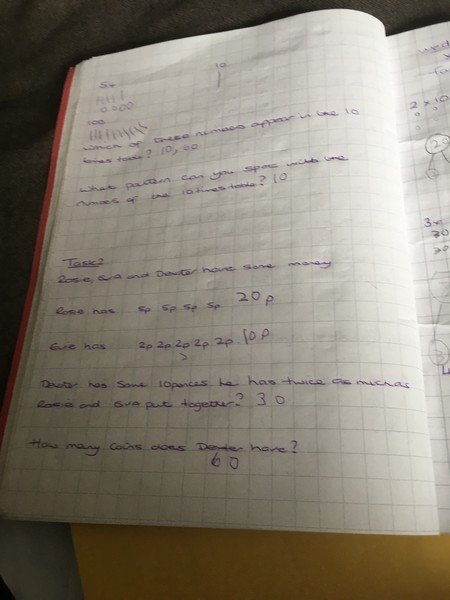 10
54
100
Which of these numbers appear in the 10
times table? 10, 60
What pattern can you spot with the
numbers of the 10 times table? 10
Task 2
Rosie, Eva and Dexter have some money
Rosie has 5p 5p 5p 5p 20p
Eve has 2p 2p 2p 2p 2p 10p
Dexter has some 10 pences he has twice as much as
Rosie and Eva put together? 30
How many coins does Dexter have?
60
Wed
2 x 10
20
3x
30
20